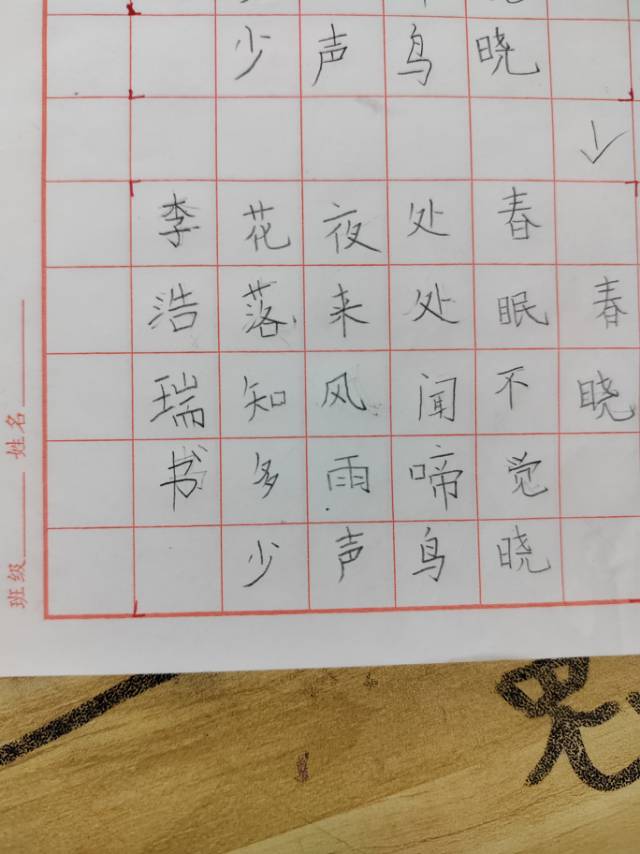 晓
鸟
声
少
春晓
春眠不觉晓
处处闻啼鸟
夜来风雨声
花落知多少
李浩瑞书
姓名
班级